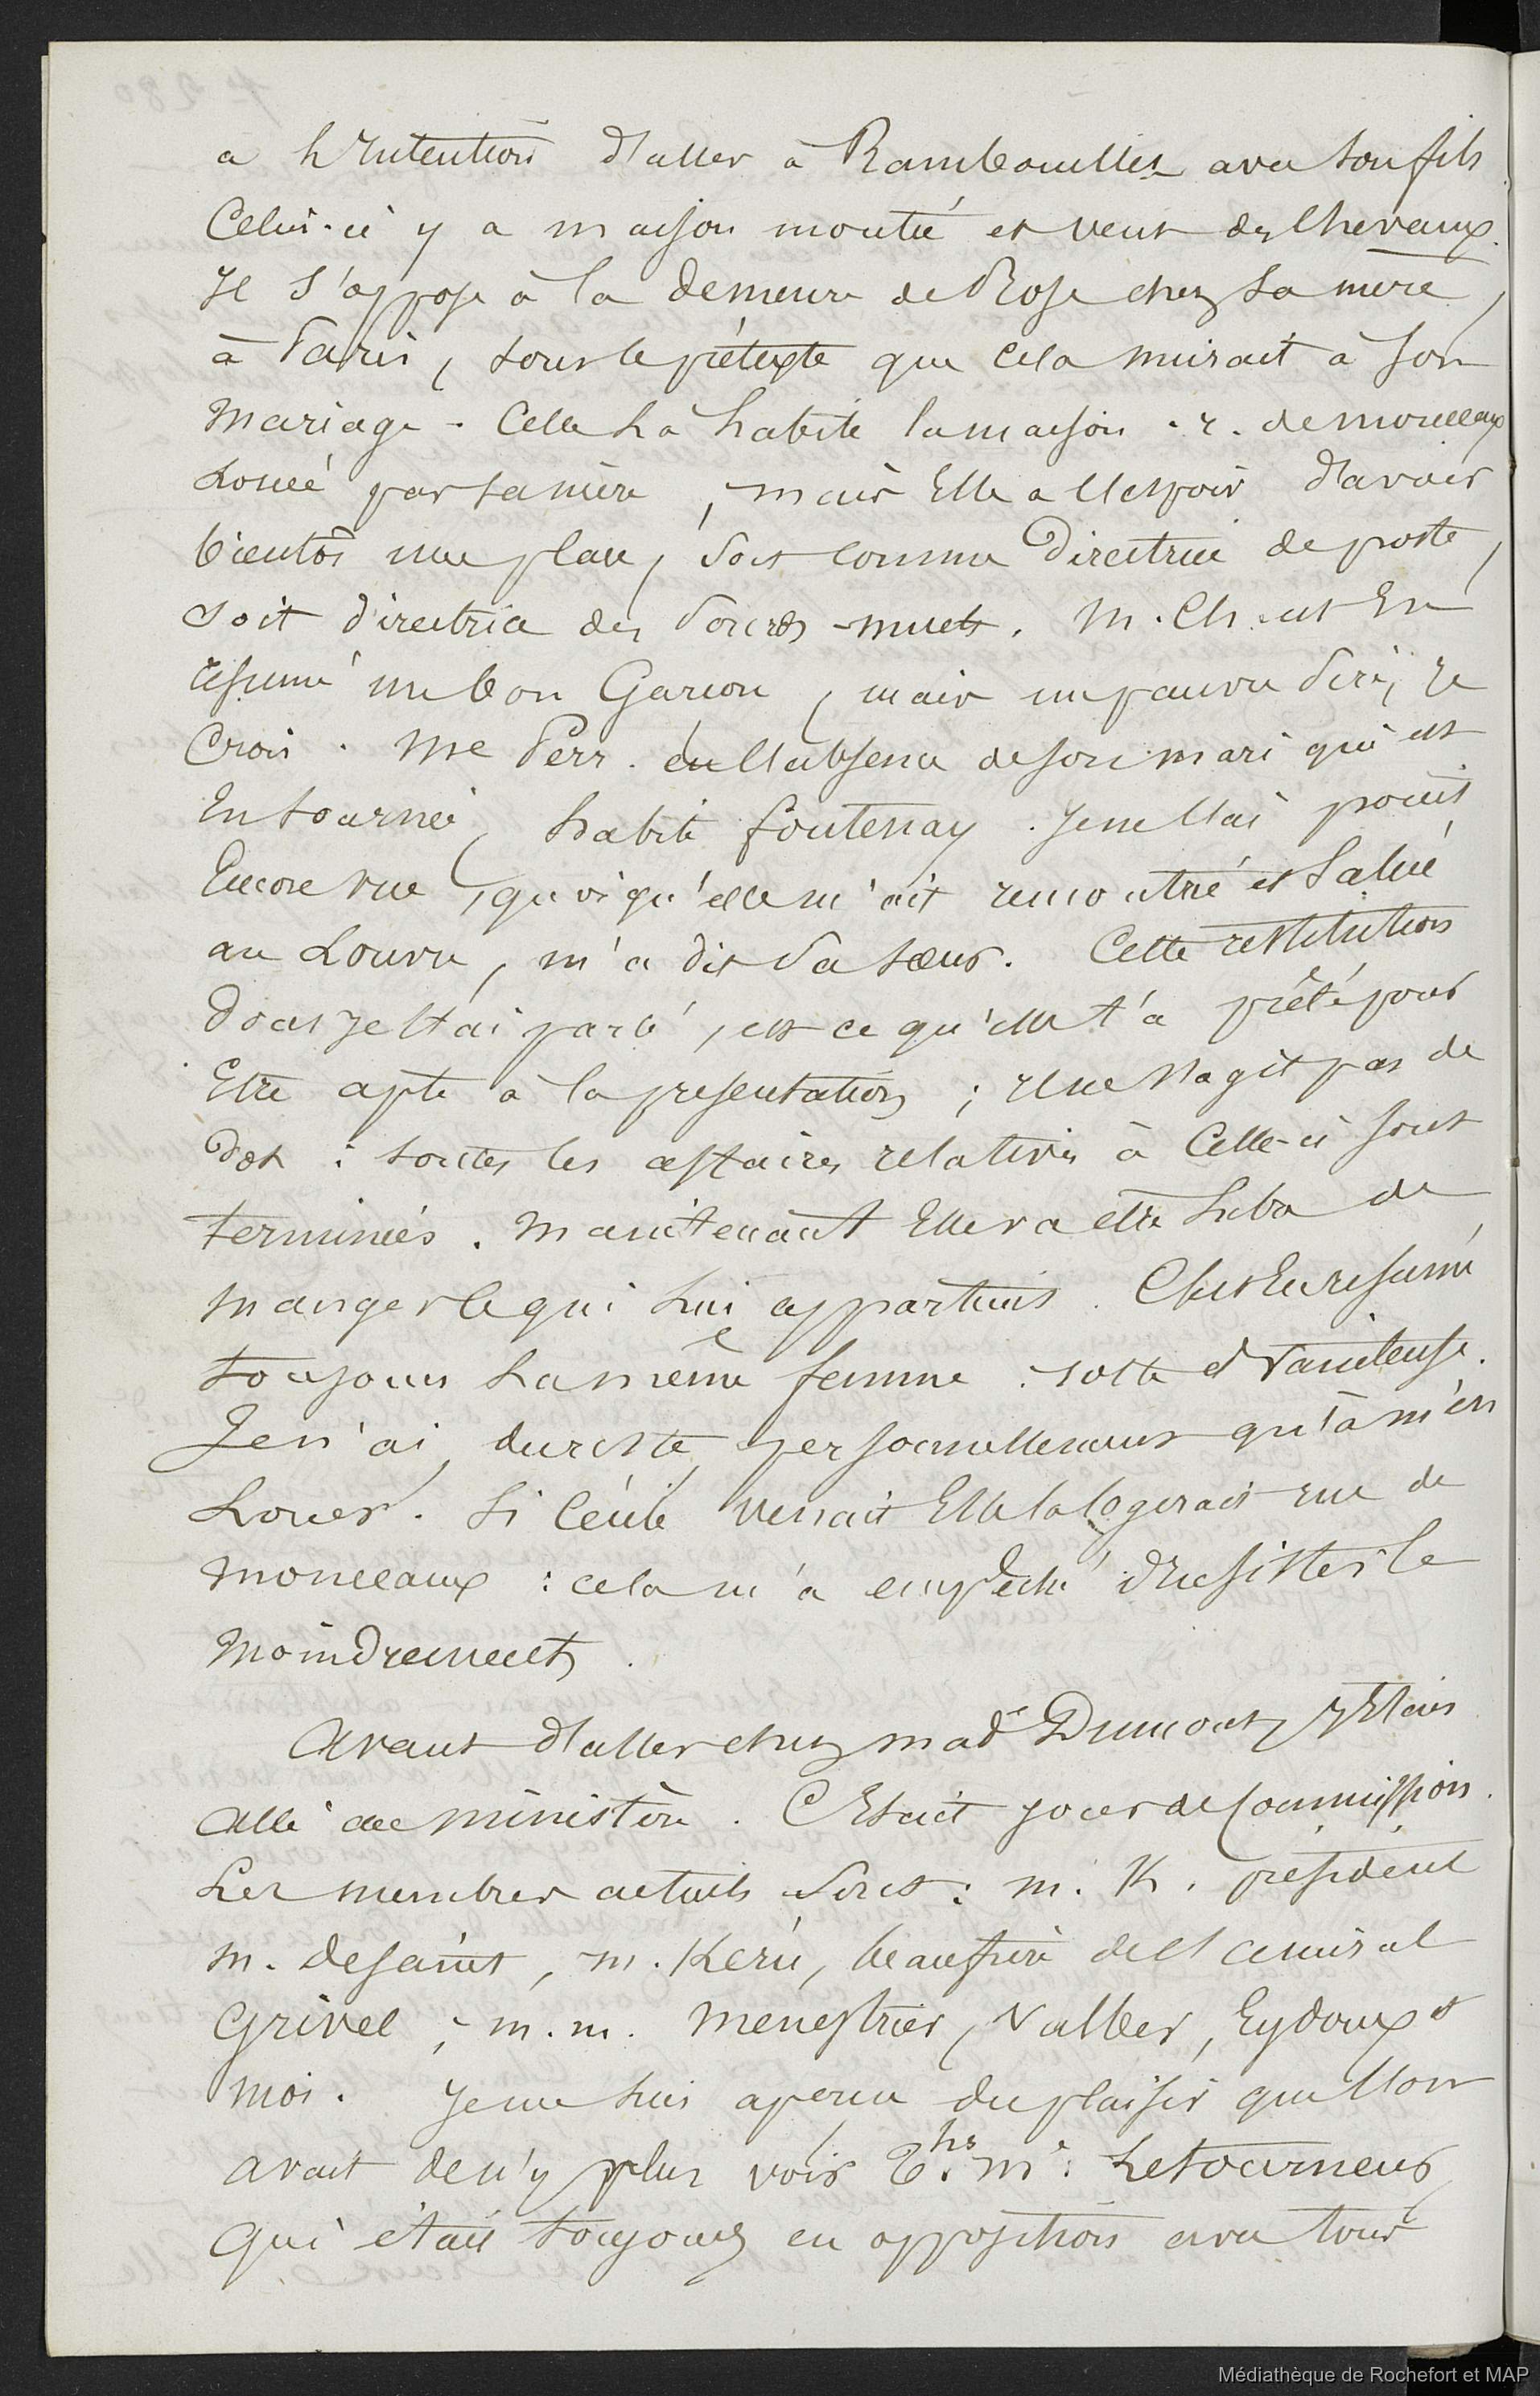 a l'intention d'aller à Rambouillet avec son fils.
Celui-ci y a maison montée et veut des chevaux.
Il s'oppose à la demeure de Rose chez sa mère,
à Paris, sous le prétexte que cela nuirait à son
mariage. Celle-là habite la maison r. de monceaux
louée par sa mère, mais elle a l'espoir d'avoir
bientôt une place, soit comme directrice de poste,
soit directrice des sourds-muets. M. Ch. est en
résumé un bon garçon, mais un pauvre sire, je
crois. Me Perr. en l'absence de son mari qui est
en tournée, habite fontenay. Je ne l'ai point
encore vue, quoiqu'elle m'ait rencontré et salué
au Louvre, m'a dit sa sœur. Cette restitution
dont je t'ai parlé, est ce qu'elle t'a prêté pour
être apte à la présentation ; il ne s'agit pas de
dot : toutes les affaires relatives à celle-ci sont
terminées. Maintenant elle va être libre de
manger ce qui lui appartient. C'est en résumé
toujours la même femme : sotte et vaniteuse.
Je n'ai, du reste, personnellement qu'à m'en
louer. Si Cécile venait elle la logerait rue de
monceaux : cela m'a empêché d'insister le
moindrement.
Avant d'aller chez made Dumont, j'étais
allé au ministère. C'était jour de commission.
Les membres actuels sont : m. K. président
m. desaint, m. Kerú, beaufrère de l'amiral
Grivel ; m.m. menestrier, Valber, Eydoux et
moi. Je me suis aperçu du plaisir que l'on
avait de n'y plus voir Letourneur,
qui était toujours en opposition avec tout